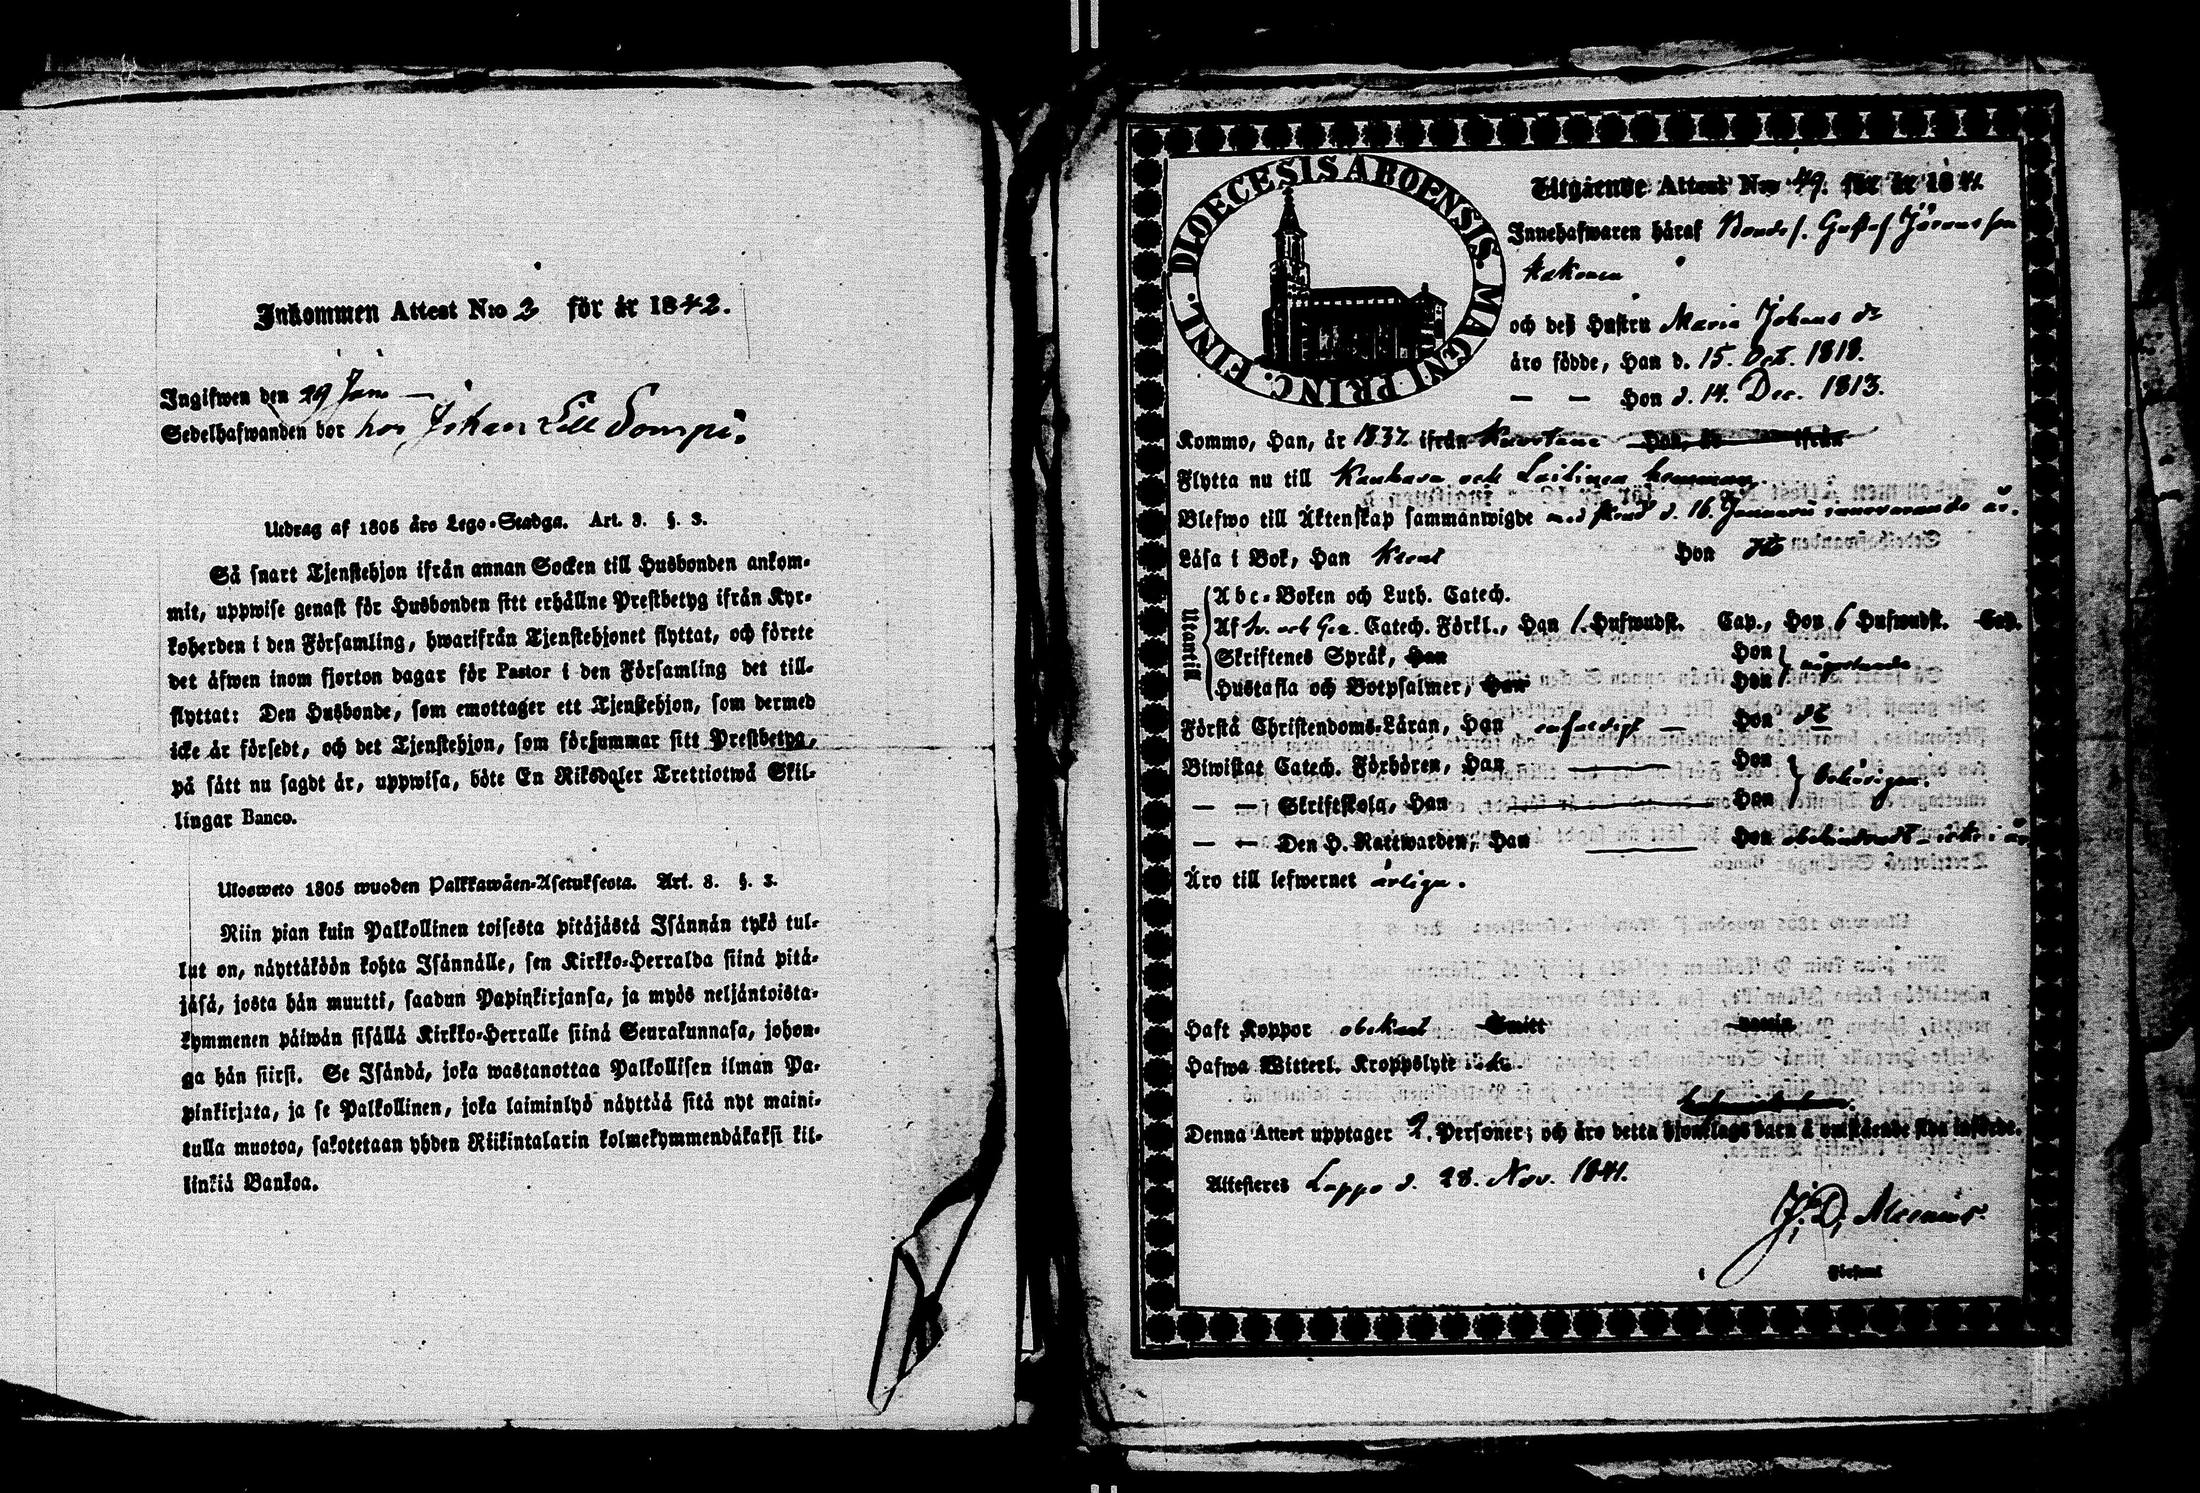 Inkommen Attest N:o 3 för år 1842.
Ingifwen den 29 Jan
Sedelhafwanden bor hos Johan Lill Sompi.
Utdrag af 1805 års Lego-Stadga. Art. 3. §. 3.
Så snart Tjenstehjon ifrån annan Socken till Husbonden ankom-
mit, uppwise genast för Husbonden sitt erhållne Prestbetyg ifrån Kyr-
koherden i den Församling, hwarifrån Tjenstehjonet flyttat, och förete
det äfwen inom fjorton dagar för Pastor i den Församling det till-
flyttat: Den Husbonde, som emottager ett Tjenstehjon, som dermed
icke är försedt, och det Tjenstehjon, som försummar sitt Prestbetyg,
på sätt nu sagdt är, uppwisa, böte En Riksdaler Trettiotwå Skil-
lingar Banco.
Ulosweto 1805 wuoden Palkkawäen-Asetuksesta. Art. 3. §. 3.
Niin pian kuin Palkollinen toisesta pitäjästä Isännän tykö tul-
lut on, näyttäköön kohta Isännälle, sen Kirkko-Herralda siinä pitä-
jäsä, josta hän muutti, saadun Papinkirjansa, ja myös neljäntoista-
kymmenen päiwän sisällä Kirkko-Herralle siinä Seurakunnasa, johon-
ga hän siirsi. Se Isändä, joka wastanottaa Palkollisen ilman Pa-
pinkirjata, ja se Palkollinen, joka laiminlyö näyttää sitä nyt maini-
tulla muotoa, sakotetaan yhden Riikintalarin kolmekymmendäkaksi kil-
linkiä Bankoa.
DIOECESIS ABOENSIS. MAGNI PRINC. FINL.
Utgående Attest N:o 49. för år 1841.
Innehafwaren häraf Bonds. Gustaf Jöransson
och deß Hustru Maria Johans dr
äro födde, Han d. 15. Oct. 1818.
— — Hon d. 14. Dec. 1813.
Kommo, Han, år 1837 ifrån Kuortane Hon, år ifrån
Flytta nu till Kauhava och Laitinen hemman
Blefwo till Äktenskap sammanwigde d. 16. Januarii innevarande år.
Läsa i Bok, Han Hon
Utantill
Abc-Boken och Luth. Catech.
Af Sv. och Catech. Förkl., Han 1. Hufwudst. Cap., Hon 6 Hufwudst. Cap.
Skriftenes Språk, Han Hon
Hustafla och Botpsalmer, Han Hon
Förstå Christendoms-Läran, Han enfaldigt — Hon
Biwistat Catech. Förhören, Han — Hon
behörigen.
— — Skriftskola, Han — Hon
— — Den H. Nattwarden, Han — Hon
Äro till lefwernet ärliga.
Haft Koppor obekant Smitt
Hafwa Witterl. Kroppslyte icke.
Denna Attest upptager 2. Personer; och äro detta hjonelags barn å omstående sida införde.
Attesteres Lappo d. 28. Nov. 1841.
J. D. Alcenius.